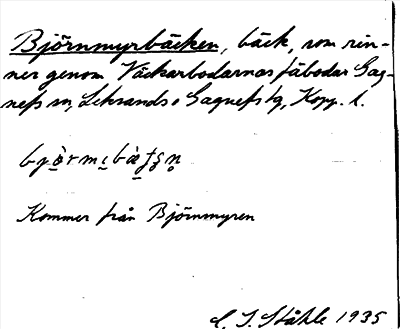 Björnmyrbäcken, bäck, som rin-
ner genom Väckarbodarnas fäbodar Gag-
nefs sn, Leksands o Gagnefs tg, Kopp. l.
Kommer från Björnmyren
C. I. Ståhle 1935